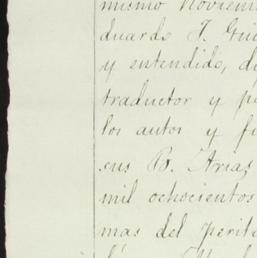 mismo Noviem
duardo J. Gui
y entendido, di
traductor y pe
los autos y fi
sus B. Arias
mil ochocientos
mas del perit